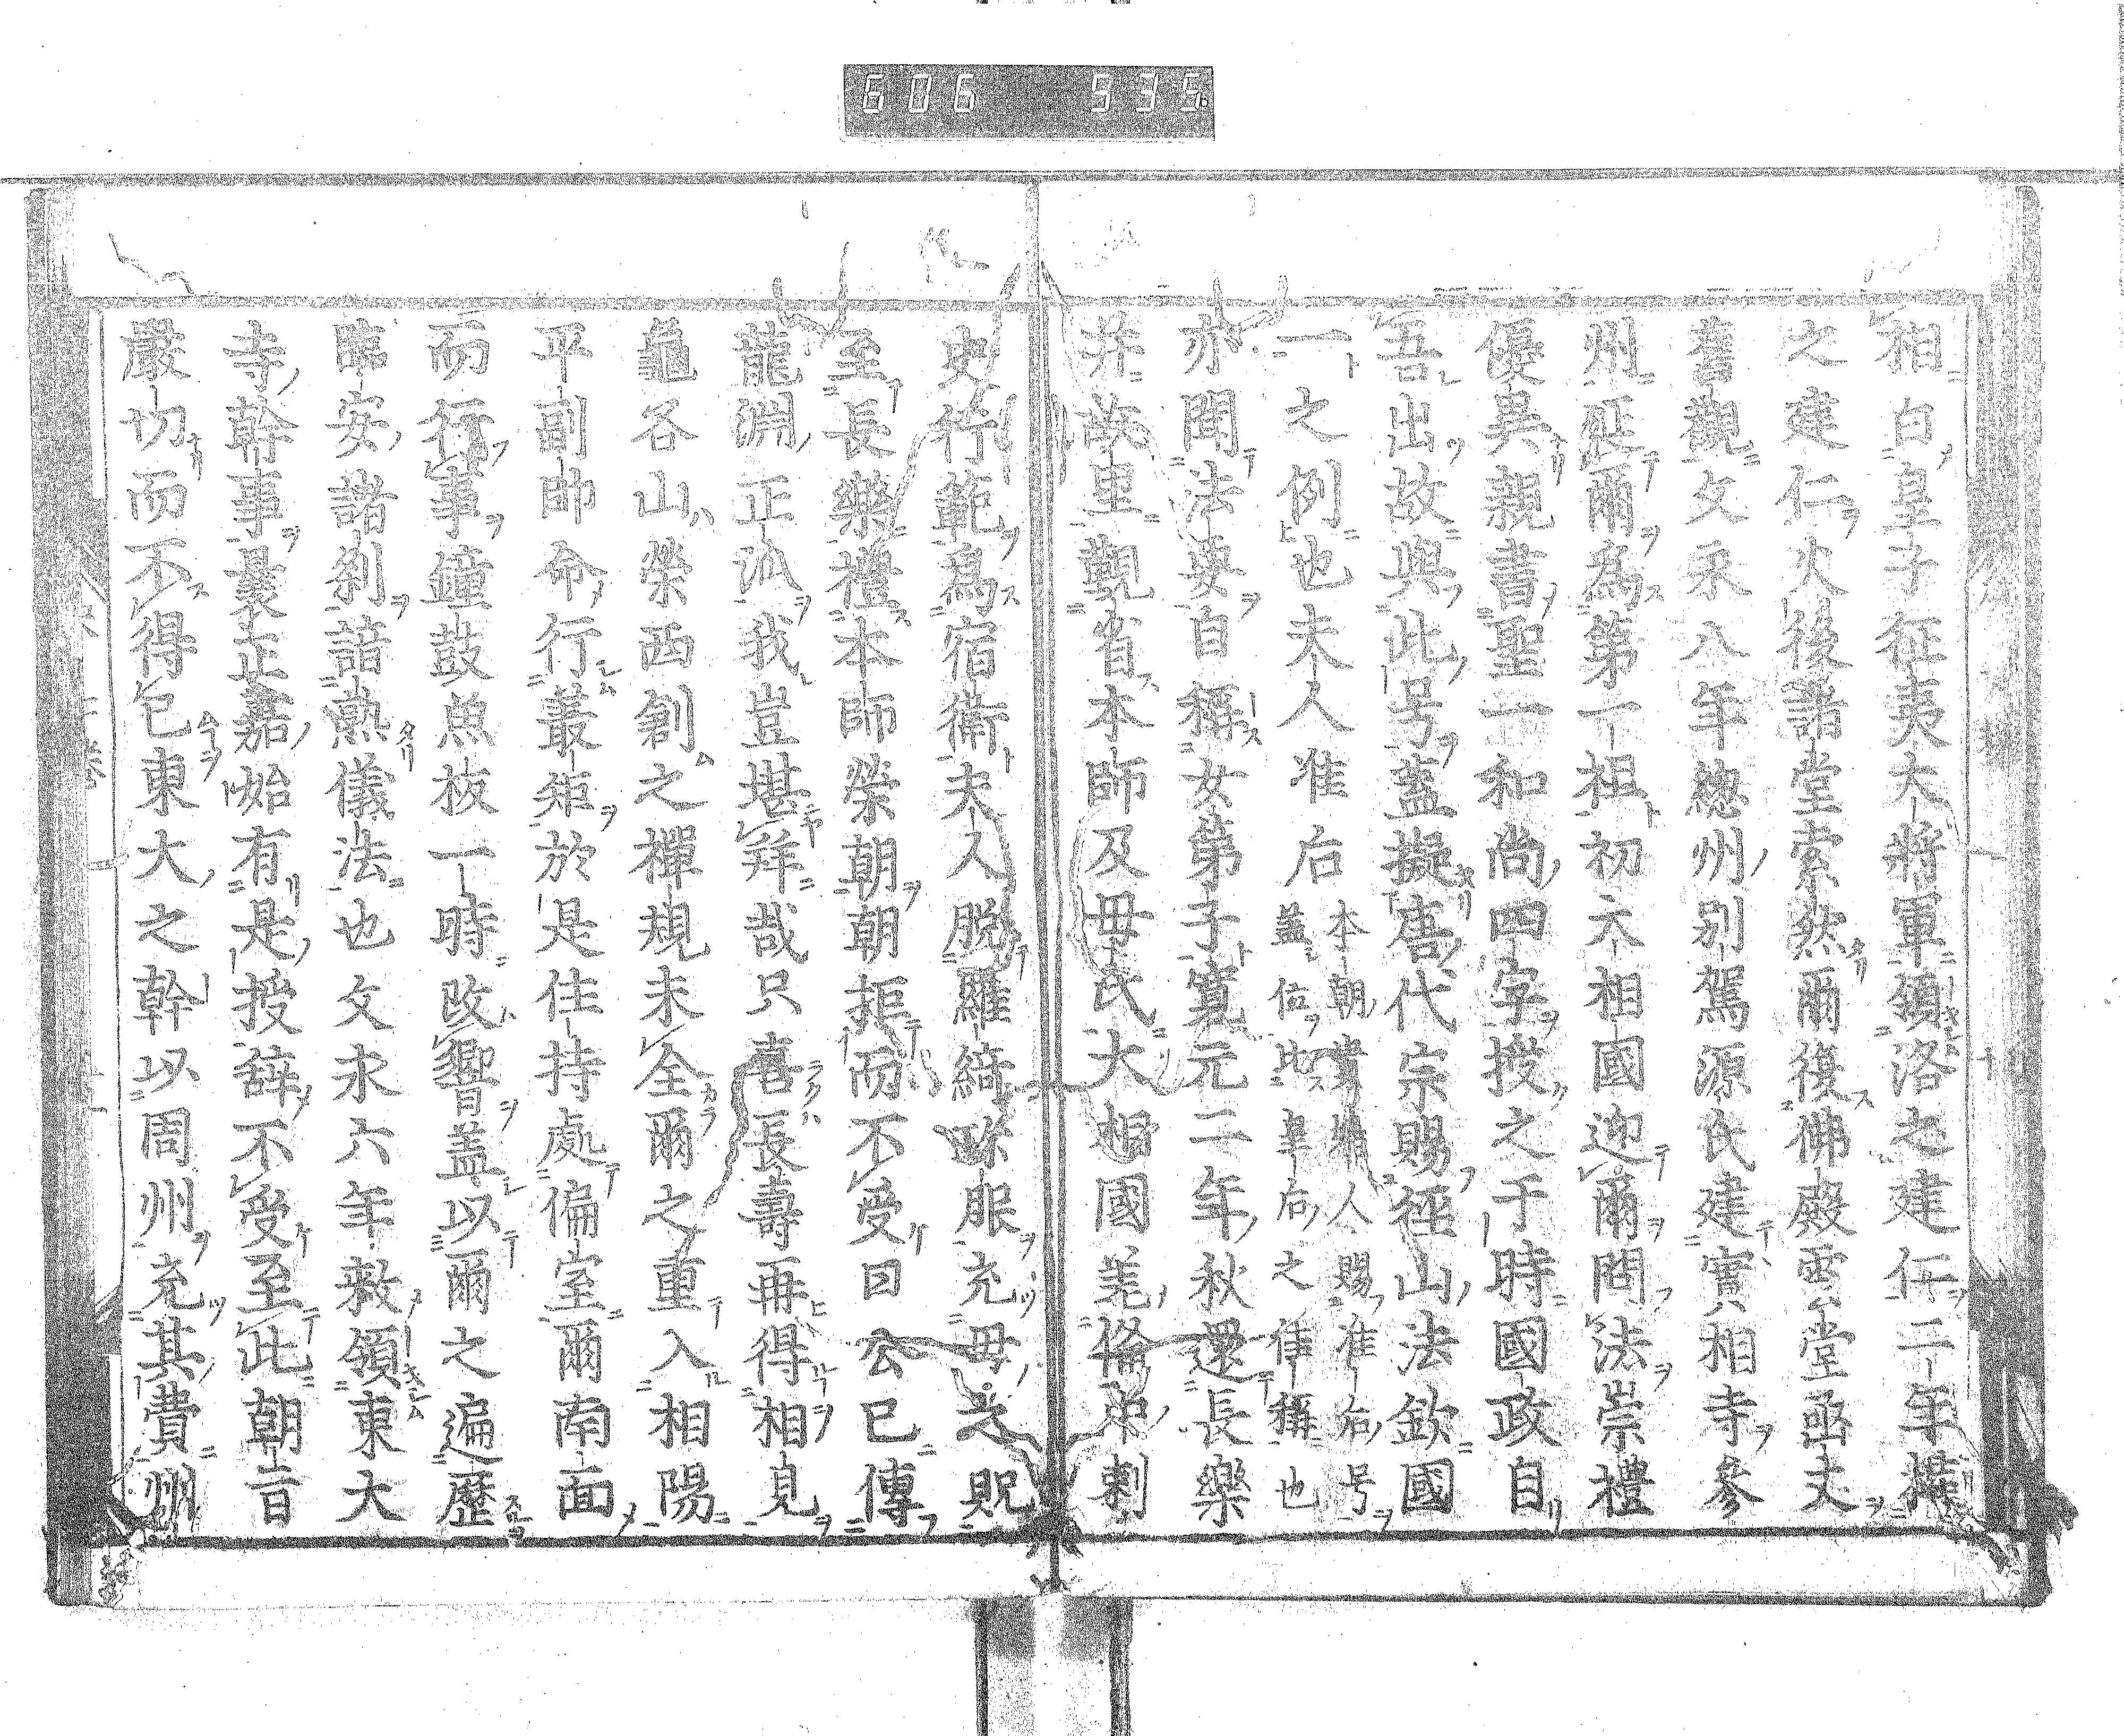 606 535
相白皇子征夷大將軍領洛之建仁二年擢
之建仁火後諸堂索然爾復佛殿雲堂函丈
舊觀文永八年總州別駕源氏建實相寺參
州延爾爲第一祖初六相國迎爾問法崇禮
優異親書聖一和尚四字授之于時國政自
吾出故與此号蓋擬唐代宗賜徑山法欽國
一之例也夫人准后本朝貴婦人賜准后号
蓋位比皇后之隼稱也
亦聞法要自稱女弟子寛元二年秋還長樂
并故里覲省本師及毋氏大相國差倫弟剌
史行範爲宿衛夫人脱羅綺珎服充毋之貺
至長樂禮本師榮朝朝拒而不受曰公已傳
龍淵正泒我豈堪拜哉只喜長壽再得相見
龜谷山榮西創之禪規未全爾之重入相陽
平副帥命行叢矩於是住持處偏室爾南面
而行事鐘鼓魚板一時改響蓋以爾之遍歷
臨安諸刹諳熟儀法也文永六年敕領東大
寺幹事曩正嘉始有是授辭不受至此朝旨
嚴切而不得已東大之幹以周州充其費州